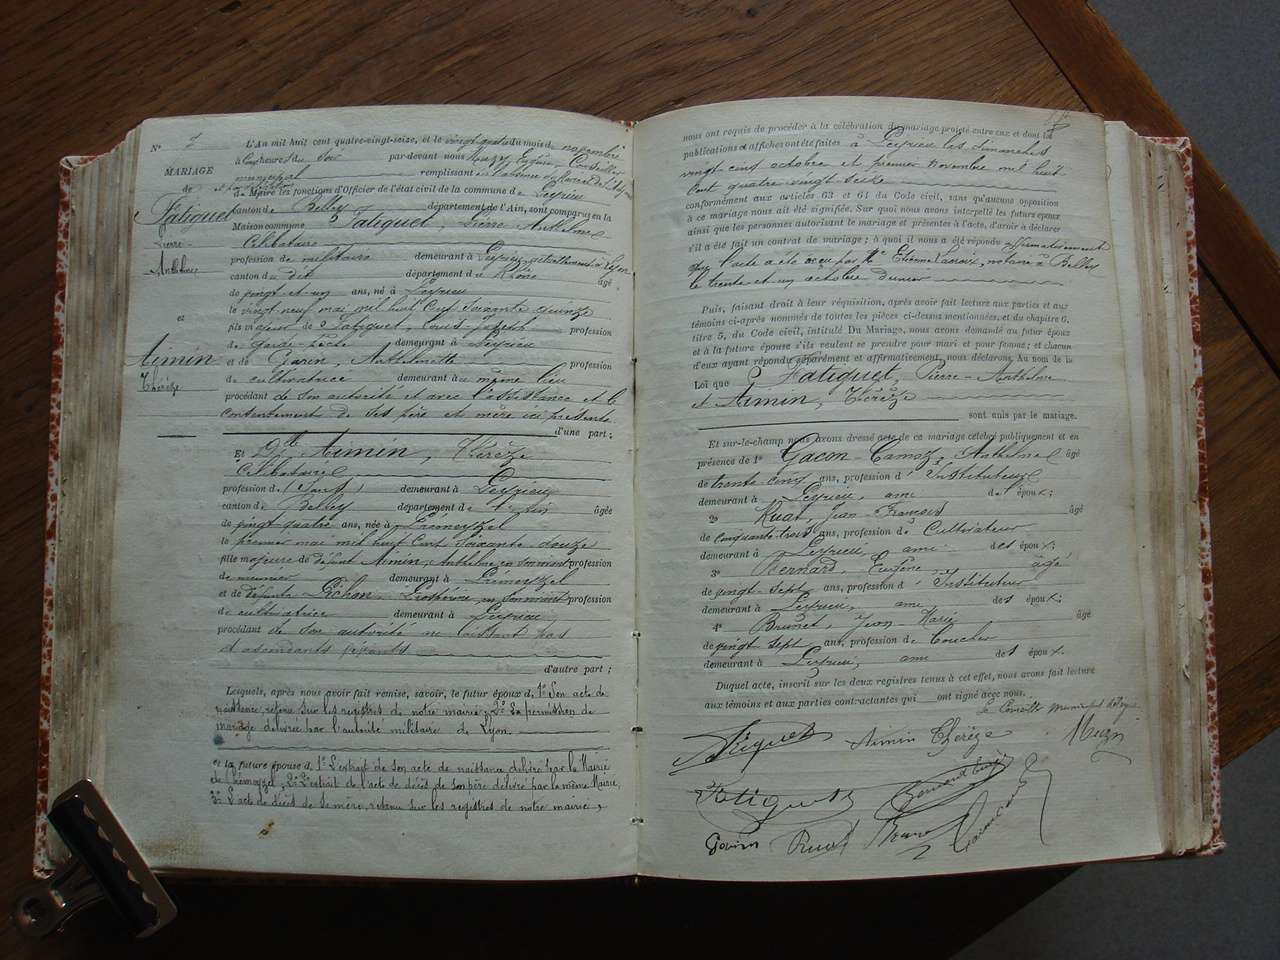 N° 7
MARIAGE
de
Fatiguet
Pierre-
Anthelme
et
Aimin
Thérèze
L'An mil huit cent quatre-vingt-seize, et le vingt quatre du mois de novembre
à heures du soir par-devant nous Conseiller
municipal remplissant
de Maire les fonctions d'Officier de l'état civil de la commune de Peyrieu
canton de Belley département de l'Ain, sont comparus en la
Maison commune Fatiguet, Pierre Anthelme
Célibataire
profession de militaire demeurant à Peyrieu, à Lyon
canton du dit département du Rhône âgé
de vingt et un ans, né à Peyrieu
le vingt neuf mai mil huit cent soixante quinze
fils majeur de Fatiguet, Louis-Joseph profession
de garde-poste demeurant à Peyrieu
et de Garin, Anthelmette profession
de cultivatrice demeurant au même lieu
procédant de son autorité et avec l'assistance et le
consentement de ses père et mère ici présents
d'une part;
Et Dlle Aimin, Thérèze
Célibataire
profession de (sans) demeurant à Peyrieu
canton de Belley département de l'Ain âgée
de vingt quatre ans, née à Prémeyzel
le premier mai mil huit cent soixante douze
fille majeure de défunt Aimin, Anthelme en son vivant profession
de meunier demeurant à Prémeyzel
et de défunte Pichon, en son vivant profession
de cultivatrice demeurant à Peyrieu
procédant de son autorité ne laissant pas
d'ascendants vivants
d'autre part;
Lesquels, après nous avoir fait remise, savoir, le futur époux d. 1° Son acte de
naissance, retenu sur les registres de notre mairie, 2° La permission de
mariage délivrée par l'autorité militaire de Lyon.
et la future épouse d. 1° L'extrait de son acte de naissance délivré par la Mairie
de Prémeyzel, 2° L'extrait de l'acte de décès de son père délivré par la même Mairie,
3° L'acte de décès de la mère, retenu sur les registres de notre mairie,
nous ont requis de procéder à la célébration du mariage projeté entre eux et dont les
publications et affiches ont été faites à Peyrieu les dimanches
vingt cinq octobre et premier novembre mil huit
cent quatre vingt seize
conformément aux articles 63 et 64 du Code civil, sans qu'aucune opposition
à ce mariage nous ait été signifiée. Sur quoi nous avons interpellé les futurs époux
ainsi que les personnes autorisant le mariage et présentes à l'acte, d'avoir à déclarer
s'il a été fait un contrat de mariage; à quoi il nous a été répondu affirmativement
que l'acte a été reçu par Me Etienne notaire à Belley
le trente et un octobre dernier
Puis, faisant droit à leur réquisition, après avoir fait lecture aux parties et aux
témoins ci-après nommés de toutes les pièces ci-dessus mentionnées, et du chapitre 6,
titre 5, du Code civil, intitulé Du Mariage, nous avons demandé au futur époux
et à la future épouse s'ils veulent se prendre pour mari et pour femme; et chacun
d'eux ayant répondu séparément et affirmativement, nous déclarons Au nom de la
Loi que Fatiguet, Pierre-Anthelme
et Aimin, Thérèze
sont unis par le mariage.
Et sur-le-champ nous avons dressé acte de ce mariage célébré publiquement et en
présence de 1° Gacon-Camoz, Anthelme âgé
de trente cinq ans, profession d'Instituteur
demeurant à Peyrieu, ami de l'époux;
2° Ruat, Jean-François âgé
de cinquante-trois ans, profession de Cultivateur
demeurant à Peyrieu, ami des époux;
3° Bernard, Eugène âgé
de vingt-sept ans, profession d'Instituteur
demeurant à Peyrieu, ami des époux;
4° Brunet, Jean-Marie âgé
de vingt sept ans, profession de boucher
demeurant à Peyrieu, ami des époux.
Duquel acte, inscrit sur les deux registres tenus à cet effet, nous avons fait lecture
aux témoins et aux parties contractantes qui ont signé avec nous.
Le Conseiller Municipal délégué
Fatiguet Aimin Thérèze
Fatiguet Bernard
Garin Ruat